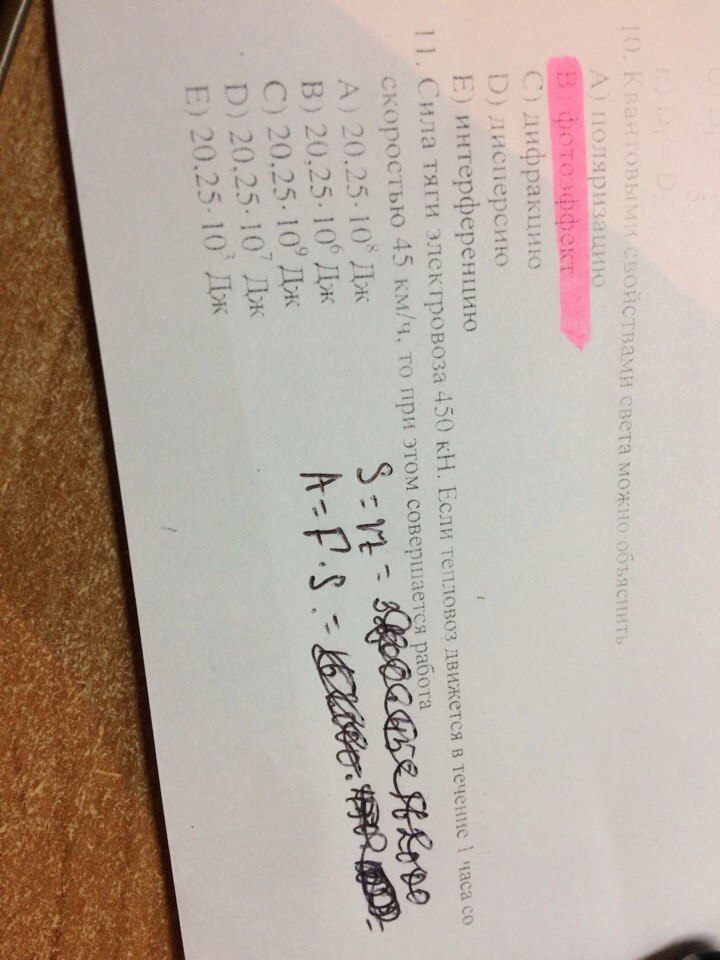 10. Квантовыми свойствами света можно объяснить
A) поляризацию
B) фотоэффект
C) дифракцию
D) дисперсию
E) интерференцию
11. Сила тяги электровоза 450 кН. Если тепловоз движется в течение 1 часа со
скоростью 45 км/ч, то при этом совершается работа
A) 20,25·10⁸ Дж
B) 20,25·10⁶ Дж
C) 20,25·10⁹ Дж
D) 20,25·10⁷ Дж
E) 20,25·10³ Дж
S = vt =
A = F·S =